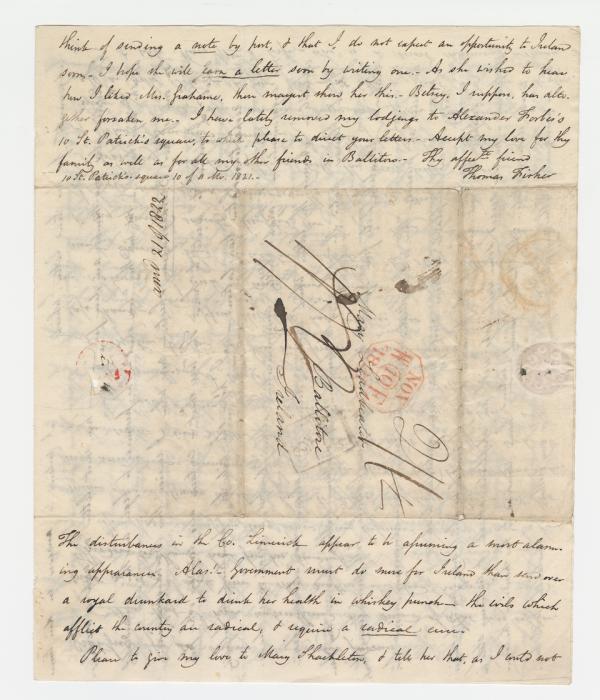 think of sending a note by post, & that I do not expect an opportunity to Ireland
soon. I hope she will earn a letter soon by writing one. As she wished to hear
how I liked Mrs. Grahame, thou mayest show her this. Betsey, I suppose, has alto-
gether forsaken me. I have lately removed my lodgings to Alexander Forbes's
10 St. Patrick's square, to which please to direct your letters. Accept my love for thy
family as well as for all my other friends in Ballitore. Thy affecte. friend
10 St. Patrick's square 10 of 11 Mo. 1821. Thomas Fisher
ansd 12/1/1822
Ballitore
Ireland
NOV
1821
2/1/2
The disturbances in the Co. Limerick appear to be assuming a most alarm-
ing appearance. Alas! Government must do more for Ireland than send over
a royal drunkard to drink her health in whiskey punch - the evils which
afflict the country are radical, & require a radical cure.
Please to give my love to Mary Shackleton, & tell her that, as I could not